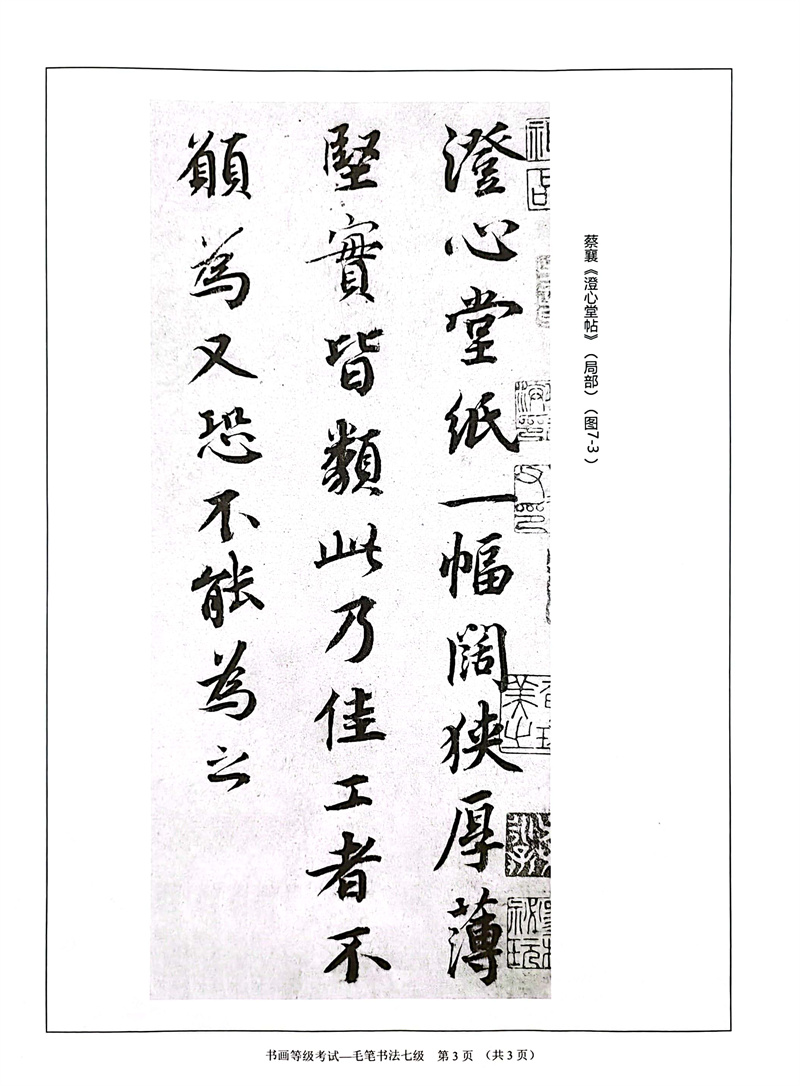 澄心堂紙一幅闊狹厚薄
堅實皆類此乃佳工者不
願為又恐不能為之
蔡襄《澄心堂帖》（局部）（图7-3）
书画等级考试—毛笔书法七级 第3页 （共3页）